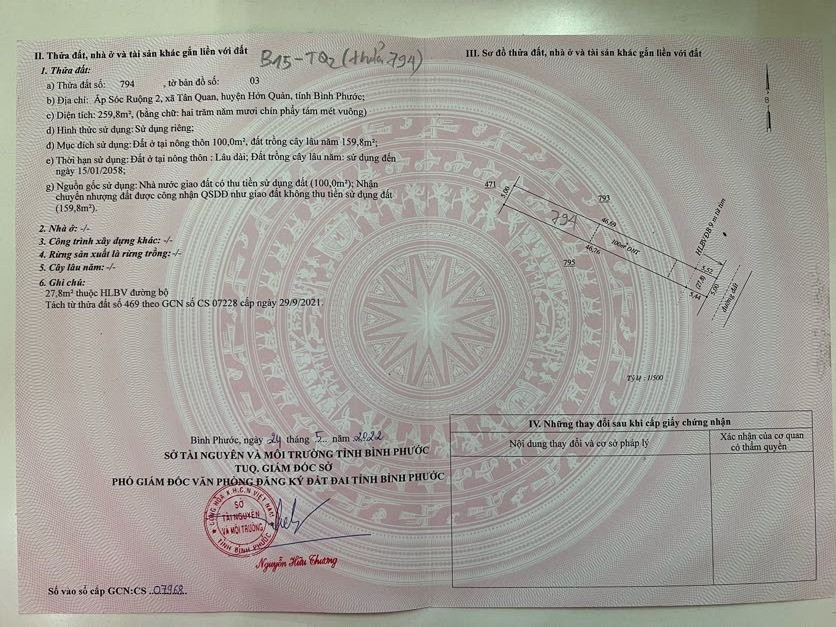 II. Thửa đất, nhà ở và tài sản khác gắn liền với đất
B15-TQ2 (thửa 794)
1. Thửa đất:
a) Thửa đất số: 794 , tờ bản đồ số: 03
b) Địa chỉ: Ấp Sóc Ruộng 2, xã Tân Quan, huyện Hớn Quản, tỉnh Bình Phước;
c) Diện tích: 259,8m², (bằng chữ: hai trăm năm mươi chín phẩy tám mét vuông)
d) Hình thức sử dụng: Sử dụng riêng;
đ) Mục đích sử dụng: Đất ở tại nông thôn 100,0m², đất trồng cây lâu năm 159,8m²;
e) Thời hạn sử dụng: Đất ở tại nông thôn : Lâu dài; Đất trồng cây lâu năm: sử dụng đến
ngày 15/01/2058;
g) Nguồn gốc sử dụng: Nhà nước giao đất có thu tiền sử dụng đất (100,0m²); Nhận
chuyển nhượng đất được công nhận QSDĐ như giao đất không thu tiền sử dụng đất
(159,8m²).
2. Nhà ở: -/-
3. Công trình xây dựng khác: -/-
4. Rừng sản xuất là rừng trồng: -/-
5. Cây lâu năm: -/-
6. Ghi chú:
27,8m² thuộc HLBV đường bộ
Tách từ thửa đất số 469 theo GCN số CS 07228 cấp ngày 29/9/2021.
Bình Phước, ngày 24 tháng 5 năm 2022
SỞ TÀI NGUYÊN VÀ MÔI TRƯỜNG TỈNH BÌNH PHƯỚC
TUQ. GIÁM ĐỐC SỞ
PHÓ GIÁM ĐỐC VĂN PHÒNG ĐĂNG KÝ ĐẤT ĐAI TỈNH BÌNH PHƯỚC
CỘNG HÒA X.H.C.N VIỆT NAM
SỞ
TÀI NGUYÊN
VÀ MÔI TRƯỜNG
TỈNH BÌNH PHƯỚC
Nguyễn Hữu Thương
Số vào sổ cấp GCN:CS ..07968
III. Sơ đồ thửa đất, nhà ở và tài sản khác gắn liền với đất
B
471
5,00
793
794
46,69
100m² ONT
46,76
795
HLBVĐB 9 m từ tim
5,52
(27,8)
5,44
5,00
đường đất
Tỷ lệ : 1/500
IV. Những thay đổi sau khi cấp giấy chứng nhận
Nội dung thay đổi và cơ sở pháp lý
Xác nhận của cơ quan
có thẩm quyền